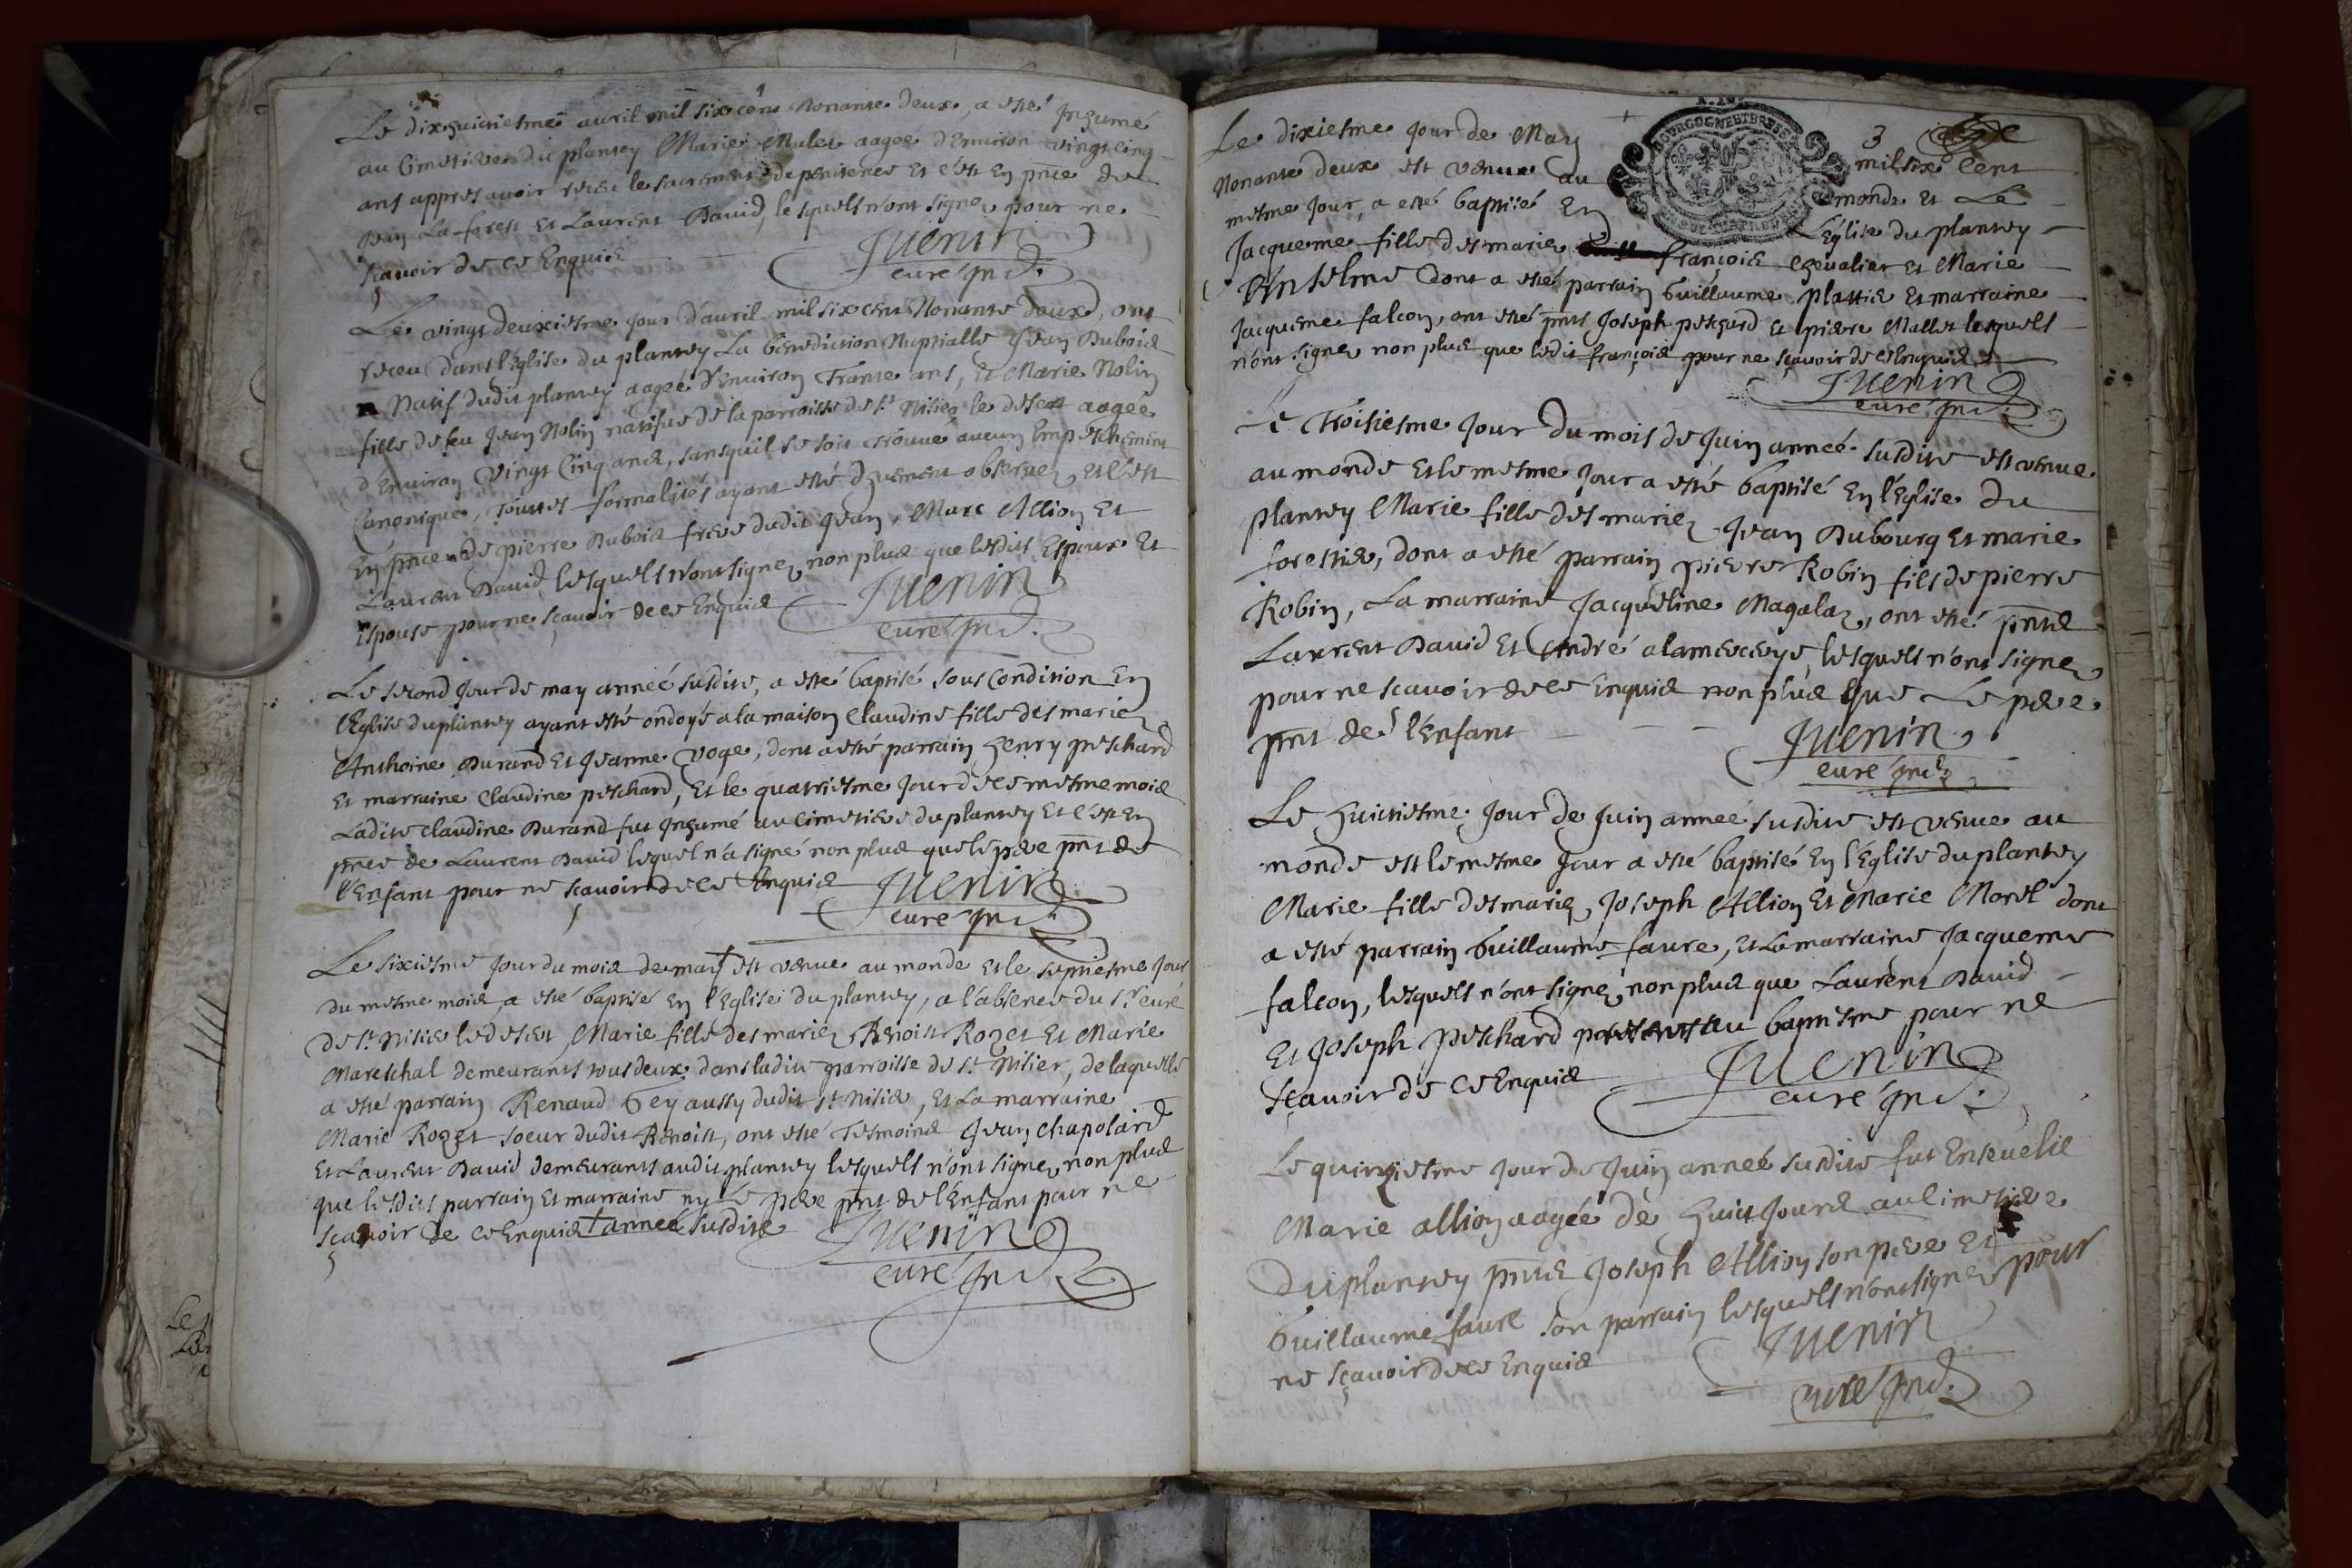 Le dixhuictiesme avril mil six cens nonante deux, a esté Inhumé
au Cimetiere du plantey Marie Mulet aagee d'Environ vingt cinq
ans appres avoir receu le sacrement de penitence Et c'est En pnce de
Jean La forest Et Laurent David, lesquels n'ont signez pour ne
scavoir de ce Enquis
Juenin
curé ind.
Le vingt deuxiesme jour d'avril mil six cent Nonante deux, ont
receu dans l'Eglise du plantey La benediction Nuptialle Jean Dubois
Natif dudit plantey aagé d'Environ Trante ans, Et Marie Nolin
fille de feu Jean Nolin natifve de la parroisse de St Nisier le desert aagée
d'Environ Vingt Cinq ans, sans quil se soit trouvé aucun Empeschement
Canonique, touttes formalités ayant esté dhuement observez, et c'est
En pnce de pierre Dubois frere dudit Jean, Marc Allion Et
Laurent David, lesquels n'ont signez non plus que lesdits Espoux Et
Espouse pour ne sçavoir de ce Enquis
Juenin
curé ind.
Le second jour de may année susdite, a esté baptisé sous Condition En
l'Eglise du plantey ayant esté ondoyé a la maison Claudine fille des mariez
Anthoine Durand Et Jeanne Voge, dont a esté parrain henry peschard
Et marraine Claudine peschard, Et le quatriesme jour de ce mesme mois
Ladite Claudine Durand fut Inhumé au Cimetiere du plantey Et c'est En
pnce de Laurent David lequel n'a signé non plus que le pere pnt de
l'Enfant pour ne sçavoir de ce Enquis
Juenin
curé ind.
Le sixiesme jour du mois de may † est venue au monde Et le septiesme jour
du mesme mois, a esté baptisé En l'Eglise du plantey, a l'absence du Sr curé
de St Nisier le desert, Marie fille des mariez Benoist Rozet Et Marie
Mareschal demeurants tous deux dans ladite parroisse de St Nisier, de laquelle
a esté parrain Renaud Gey aussy dudit St Nisier, Et La marraine
Marie Rozet soeur dudit Benoist, ont esté Tesmoins Jean Chapolard
Et Laurent David demeurants audit plantey lesquels n'ont signez non plus
que lesdits parrain Et marraine ny Le pere pnt de l'Enfant pour ne
sçavoir de ce Enquis † année susdite
Juenin
curé ind.
3
Le dixiesme jour de May mil six Cent
Nonante deux est venue au monde Et Le
mesme jour, a esté baptisé En L'Eglise du plantey
Jacqueme fille des mariez françois Chevalier Et Marie
Anselme dont a esté parrain Guillaume plattie Et marraine
Jacqueme falcon, ont esté pnts Joseph peschard Et pierre Mallet lesquels
n'ont signez non plus que ledit françois pour ne sçavoir de ce Enquis
Juenin
curé ind.
Le Troisiesme jour du mois de juin année susdite est venue
au monde Et le mesme jour a esté baptisé En l'Eglise du
plantey Marie fille des mariez Jean Dubourg Et marie
forestier, dont a esté parrain pierre Robin fils de pierre
Robin, La marraine Jacqueline Magalaz, ont esté pnts
Laurent David Et André alamercerye, lesquels n'ont signez
pour ne scavoir de ce Enquis non plus que Le pere
pnt de l'Enfant
Juenin
curé ind.
Le huictiesme jour de Juin année susdite est venue au
monde est le mesme jour a esté baptisé En l'Eglise du plantey
Marie fille des mariez Joseph Allion Et Marie Morel dont
a esté parrain Guillaume faure, Et La marraine Jacqueme
falcon, lesquels n'ont signez non plus que Laurent David
Et Joseph peschard presents au baptesme pour ne
sçavoir de ce Enquis
Juenin
curé ind.
Le quinziesme jour de juin année susdite fut Ensevelie
Marie allion aagée de huict jours au Cimetiere
du plantey pnts Joseph Allion son pere Et
Guillaume faure son parrain lesquels n'ont signez pour
ne sçavoir de ce Enquis
Juenin
curé ind.